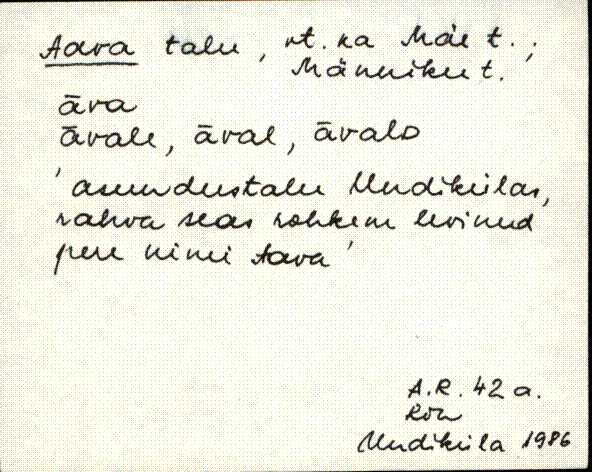 Aava talu, vt. ka Mäe t.;
Männiku t.
āva
āvale, āval, āvalᴅ
'asundustalu Uudikülas,
rahva seas rohkem levinud
pere nimi Aava'
A.R. 42 a.
Uudiküla 1986